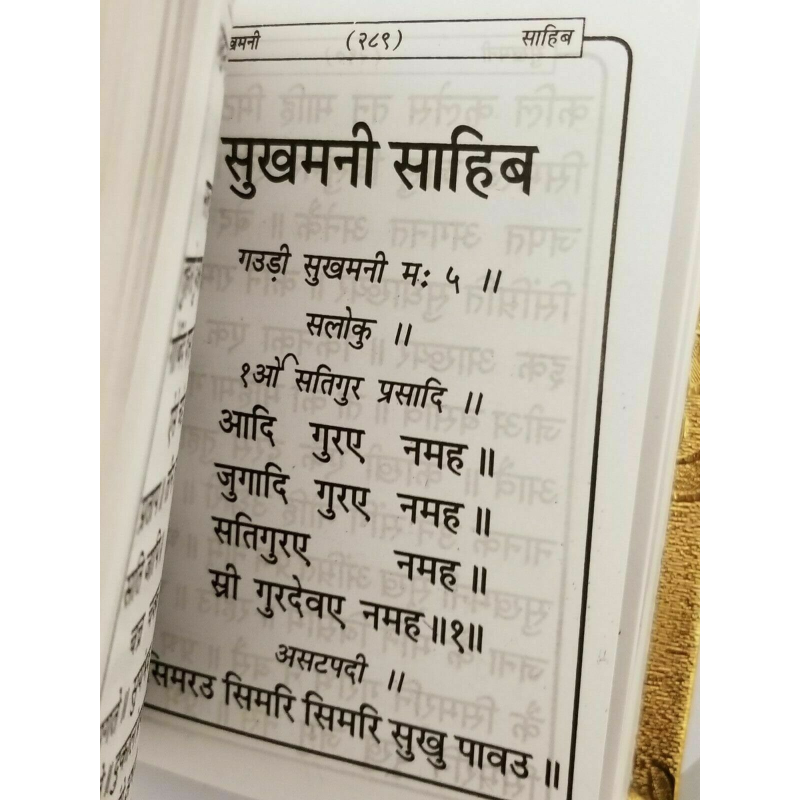 (२८९) साहिब
सुखमनी साहिब
गउड़ी सुखमनी मः ५ ॥
सलोकु ॥
१ओं सतिगुर प्रसादि ॥
आदि गुरए नमह ॥
जुगादि गुरए नमह ॥
सतिगुरए नमह ॥
स्री गुरदेवए नमह ॥१॥
असटपदी ॥
सिमरउ सिमरि सिमरि सुखु पावउ ॥